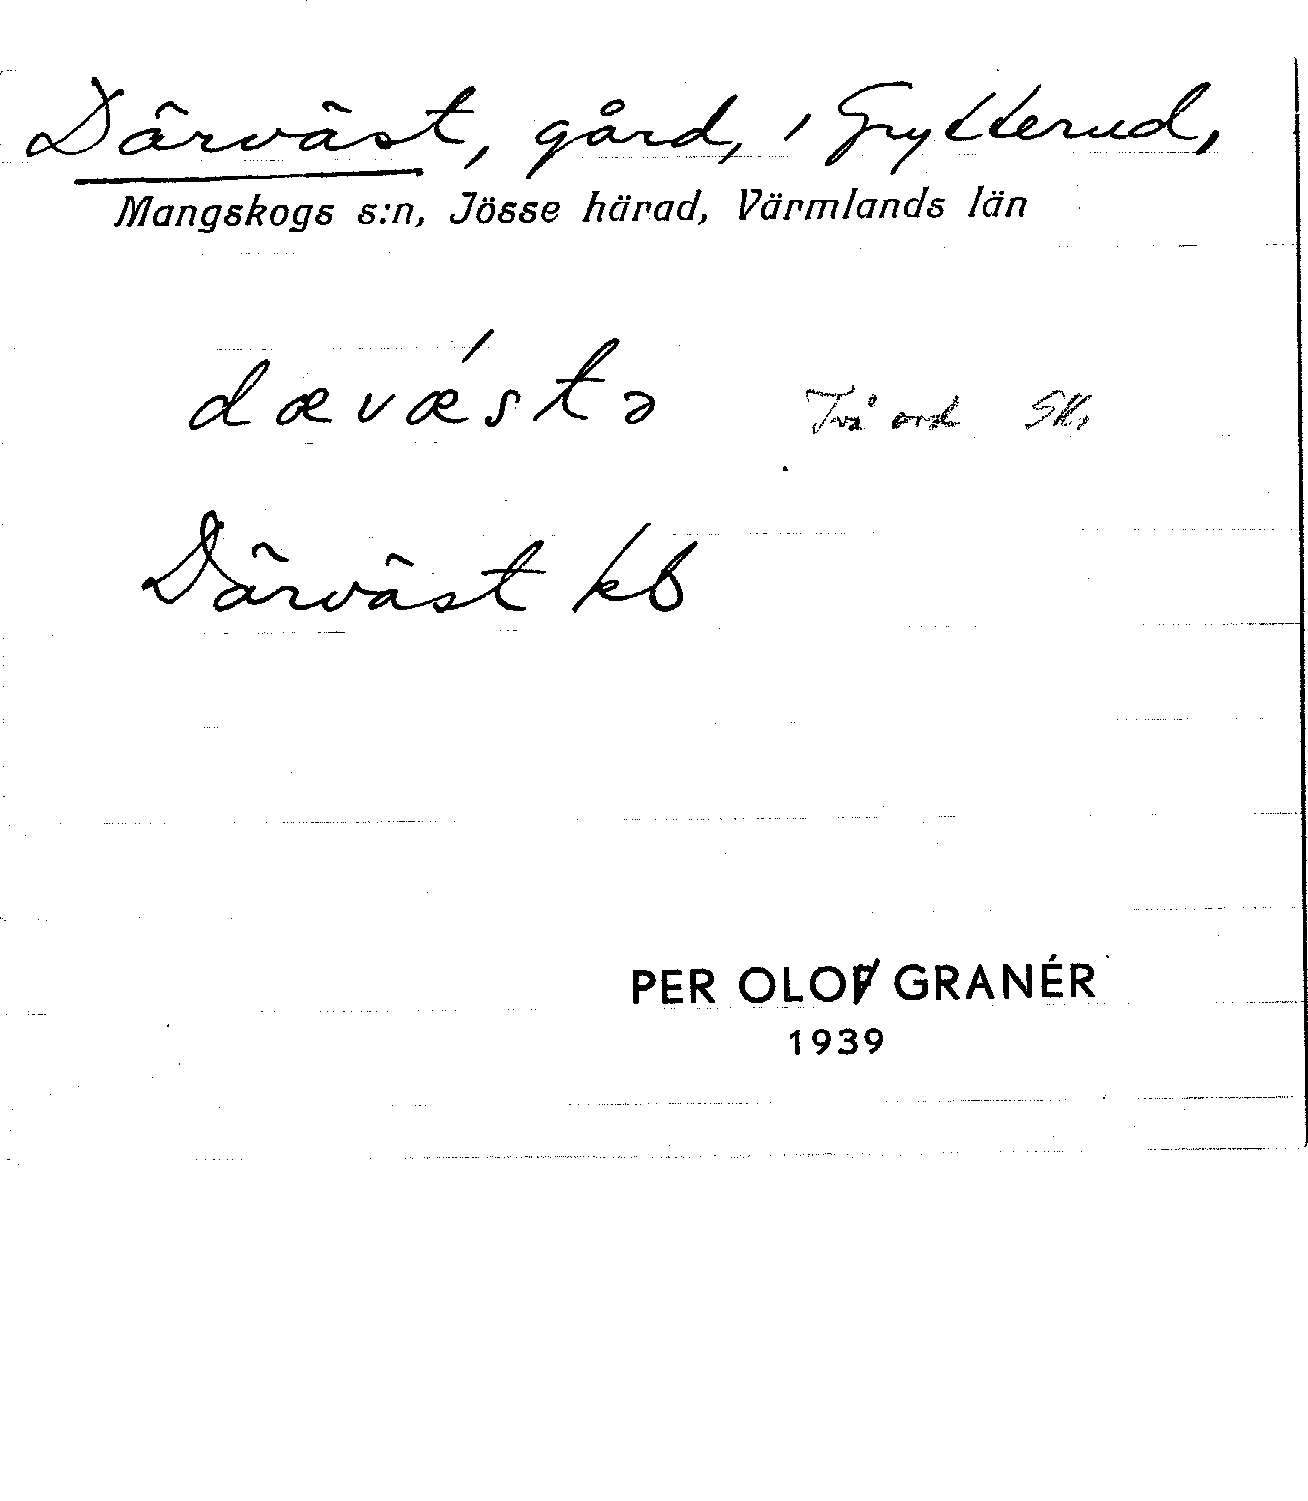 Därväst, gård, i Grytterud,
Mangskogs s:n, Jösse härad, Värmlands län
dævǽstə Två ord
Därväst kb
PER OLOF GRANÉR
1939